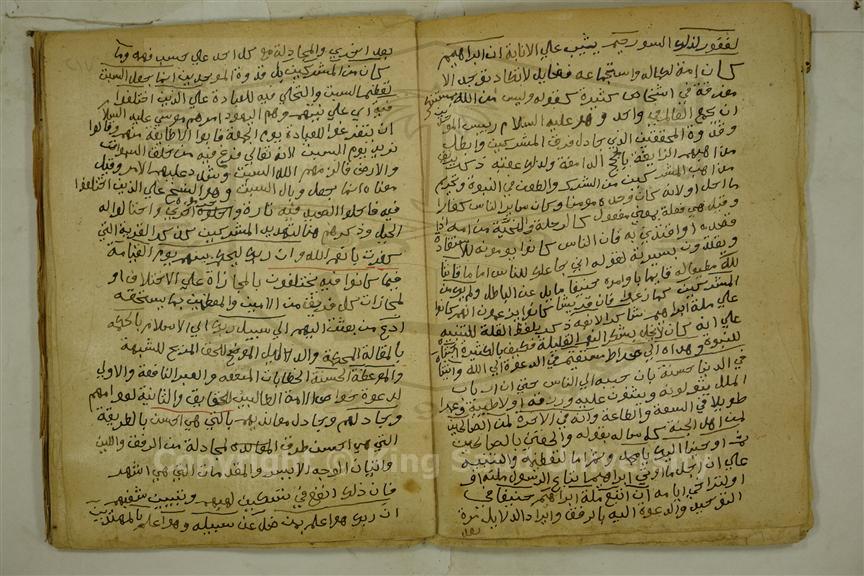 لغفور لذلك السوء رحيم يثيب علي الانابة ان ابراهيم
كان امة لكماله واستجماعه فضايل لا تكاد توجد الا
مفرقة في اشخاص كثيرة كقوله وليس من الله بمستنكر
ان يجمع العالم في واحد وهو عليه السلام رييس الموحدين
وقدوة المحققين الذي جادل فرق المشركين وابطل
مذاهبهم الزايغة بالحجج الدامغة ولذلك عقبه ذكره بتزييف
مذاهب المشركين من الشرك والطعن في النبوة وتحريم
ما احل او لانه كان وحده مومنا وكان ساير الناس كفارا
وقيل هي فعلة بمعني مفعول كالرحلة والنخبة من امه اذا
قصده او اقتدي به فان الناس كانوا يومونه للاستفادة
ويقتدون بسيرته لقوله اني جاعلك للناس اماما قانتا
لله مطيعا له قايما باوامره حنيفا مايلا عن الباطل ولم يك من
المشركين كما زعموا فان قريشا كانوا يزعمون انهم كانوا
علي ملة ابراهيم شاكرا لانعمه ذكر بلفظ القلة للتنبيه
علي انه كان لا يخل بشكر النعم القليلة فكيف بالكثيرة اجتباه
للنبوة وهداه الي صراط مستقيم في الدعوة الي الله واتيناه
في الدنيا حسنة بان حببه الي الناس حتي ان ارباب
الملل يتولونه ويثنون عليه ورزقه اولادا طيبة وعمرا
طويلا في السعة والطاعة وانه في الاخرة لمن الصالحين
لمن اهل الجنة كما ساله بقوله والحقني بالصالحين
ثم اوحينا اليك يا محمد وثم اما لتعظيمه والتنبيه
علي ان اجل ما اوتي ابراهيم اتباع الرسول ملته او
او لتراخي ايامه ان اتبع ملة ابراهيم حنيفا في
التوحيد والدعوة اليه بالرفق وايراد الدلايل مرة
بعد
بعد اخري والمجادلة مع كل احد علي حسب فهمه وما
كان من المشركين بل قدوة الموحدين انما جعل السبت
تعظيم السبت والتخلي فيه للعبادة علي الذين اختلفوا
فيه اي علي نبيهم وهم اليهود امرهم موسي عليه السلام
ان يتفرغوا للعبادة يوم الجمعة فابوا الا طايفة منهم وقالوا
نريد يوم السبت لانه تعالي فرغ فيه من خلق السموات
والارض فالزمهم الله السبت وشدد عليهم الامر وقيل
معناه انما جعل وبال السبت وهو المسخ علي الذين اختلفوا
فيه فاحلوا الصيد فيه تارة وحرموه اخري واحتالوا له
الحيل وذكرهم هنا لتهديد المشركين كذكر القرية التي
كفرت بانعم الله وان ربك ليحكم بينهم يوم القيامة
فيما كانوا فيه يختلفون بالمجازاة علي الاختلاف او
لمجازات كل فريق من الابين والمعظمين بما يستحقه
ادع من بعثت اليهم الي سبيل ربك الي الاسلام بالحكمة
بالمقالة المحكمة والدلايل الموضح للحق المزيح للشبهة
والموعظة الحسنة الخطابات المقنعة والعبر النافعة والاولي
لدعوة خواص الامة الطالبين للحقايق والثانية لعوامهم
وجادلهم وجادل معانديهم بالتي هي احسن بالطريقة
التي هي احسن طرق المجادلة من الرفق واللين
واتيان الوجه الايسر والمقدمات التي هي اشهر
فان ذلك انفع في تسكين لهبهم وتبيين شغبهم
ان ربك هو اعلم بمن ضل عن سبيله وهو اعلم بالمهتدين
Copyright © King Saud University